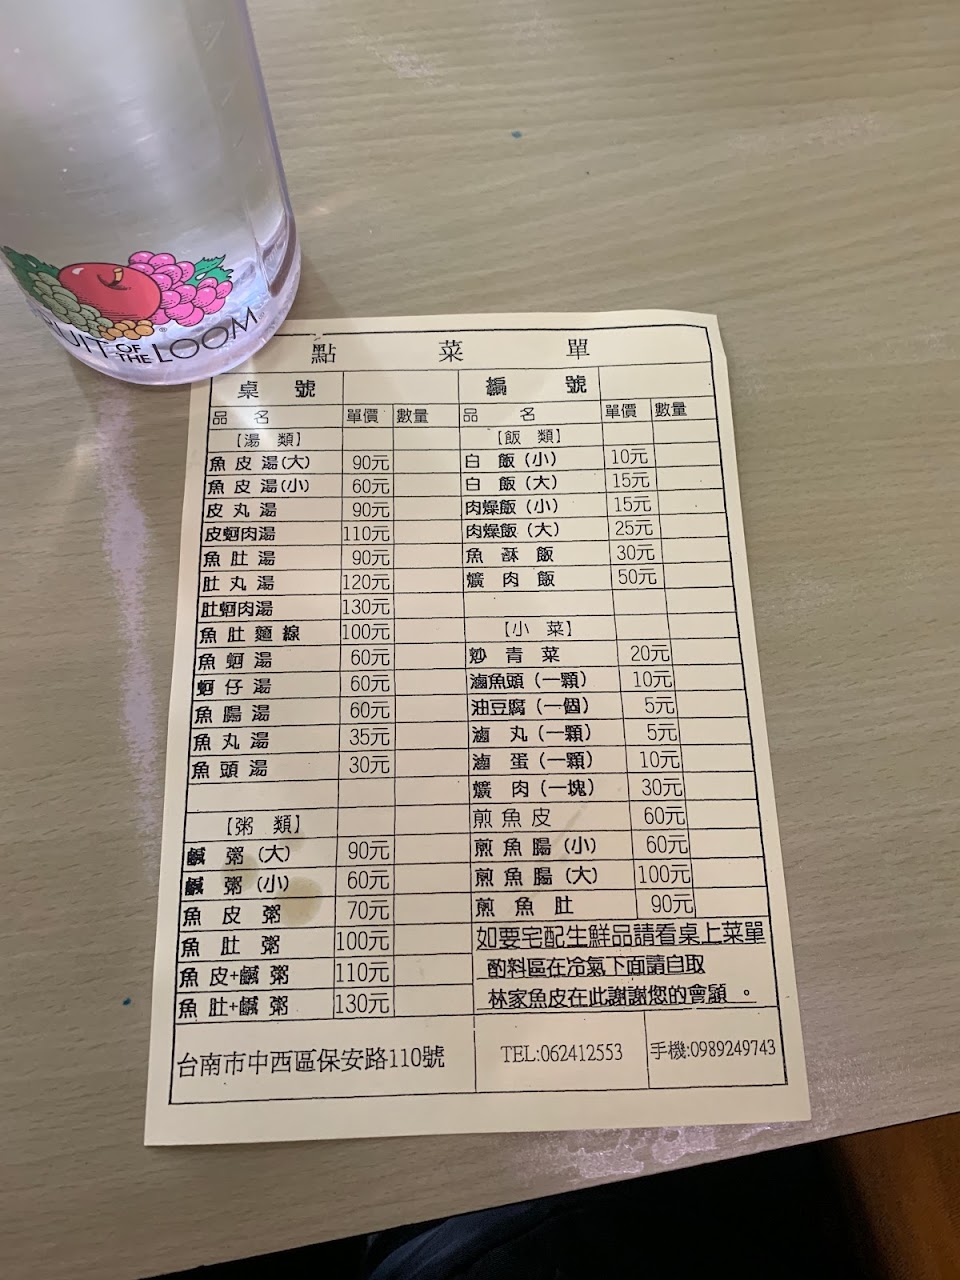 FRUIT OF THE LOOM®
點菜單
桌號 編號
品名 單價 數量 品名 單價 數量
【湯類】 【飯類】
魚皮湯(大) 90元 白飯(小) 10元
魚皮湯(小) 60元 白飯(大) 15元
皮丸湯 90元 肉燥飯(小) 15元
皮蚵肉湯 110元 肉燥飯(大) 25元
魚肚湯 90元 魚酥飯 30元
肚丸湯 120元 爌肉飯 50元
肚蚵肉湯 130元
魚肚麵線 100元 【小菜】
魚蚵湯 60元 炒青菜 20元
蚵仔湯 60元 滷魚頭(一顆) 10元
魚腸湯 60元 油豆腐(一個) 5元
魚丸湯 35元 滷丸(一顆) 5元
魚頭湯 30元 滷蛋(一顆) 10元
爌肉(一塊) 30元
【粥類】 煎魚皮 60元
鹹粥(大) 90元 煎魚腸(小) 60元
鹹粥(小) 60元 煎魚腸(大) 100元
魚皮粥 70元 煎魚肚 90元
魚肚粥 100元 如要宅配生鮮品請看桌上菜單
魚皮+鹹粥 110元 酌料區在冷氣下面請自取
魚肚+鹹粥 130元 林家魚皮在此謝謝您的會顧。
台南市中西區保安路110號 TEL:062412553 手機:0989249743